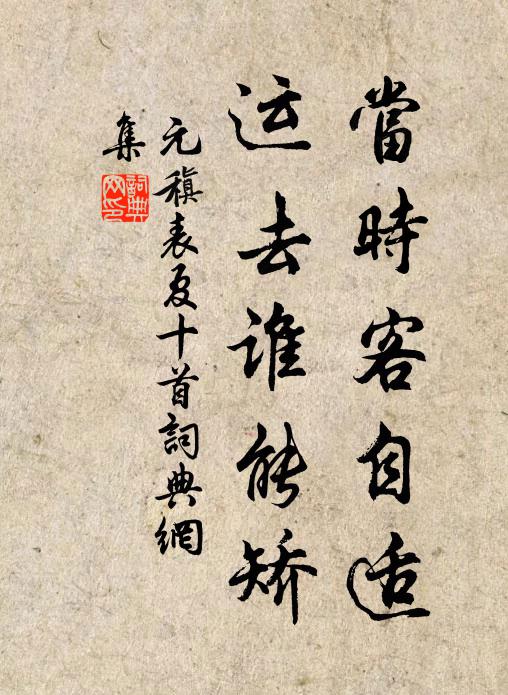 當時客自适
运去谁能矫
元稹表夏十首詞典網
集
詞典
网印